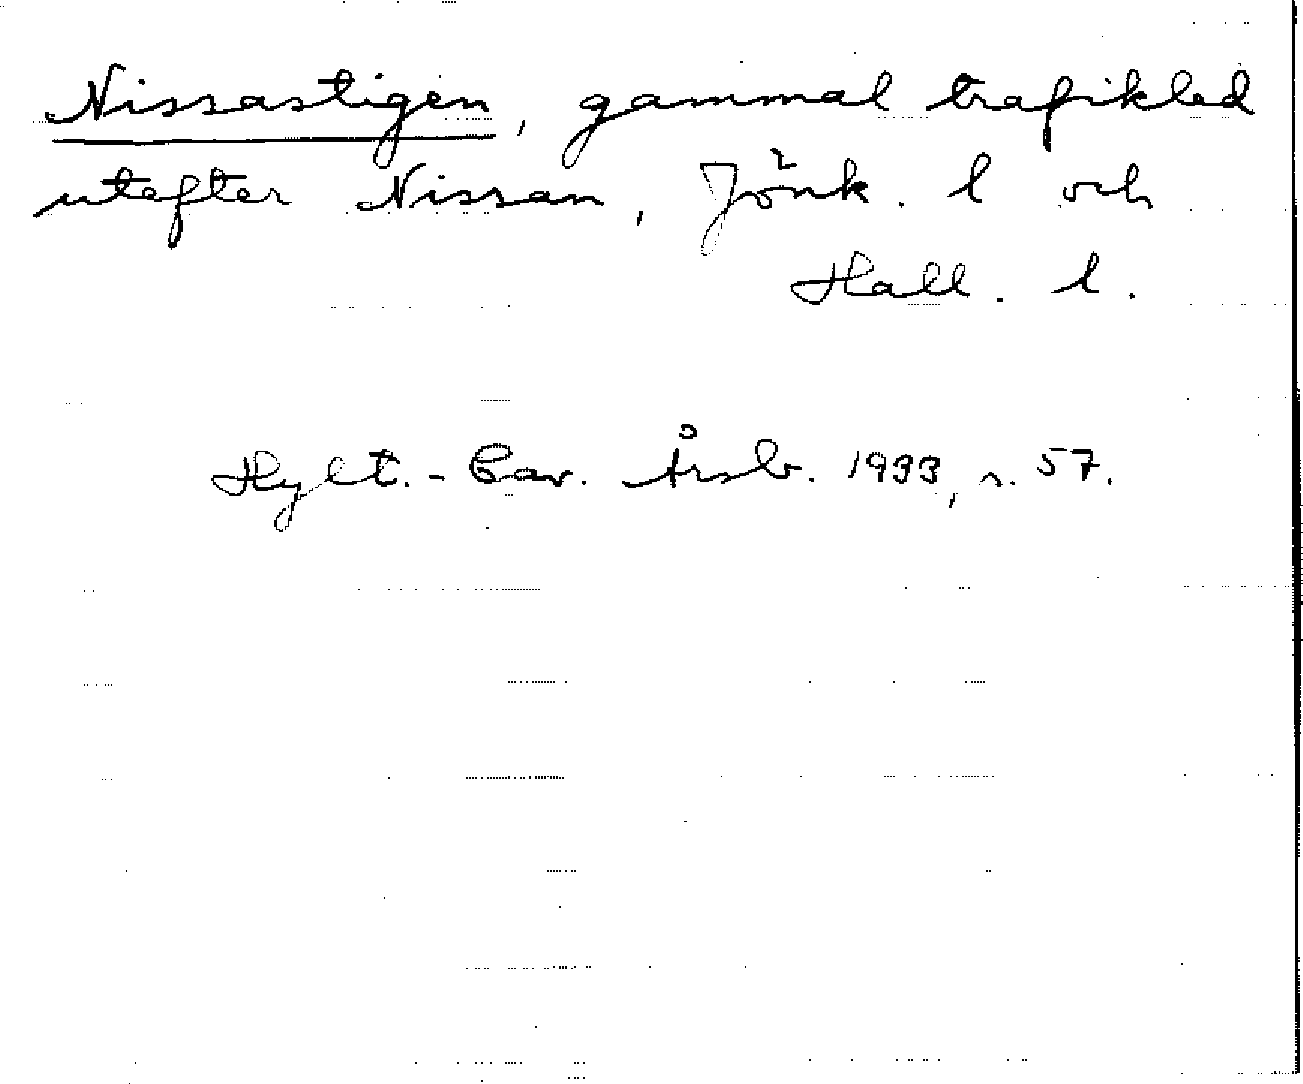 Nissastigen, gammal trafikled
utefter Nissan, Jönk. l och
Hall. l.
Hylt.-Cav. Årsb. 1933, s. 57.